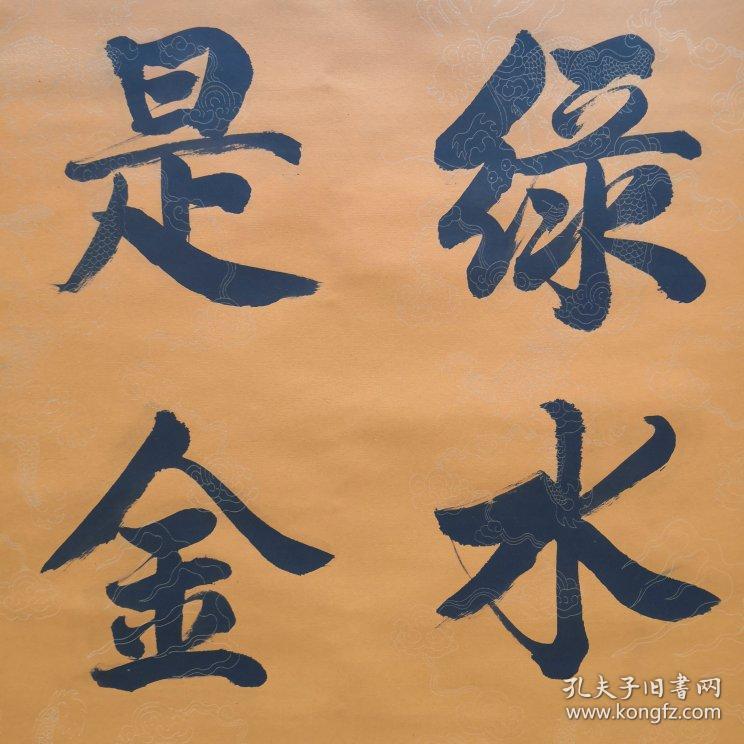 綠水
是金
孔夫子旧書网
www.kongfz.com